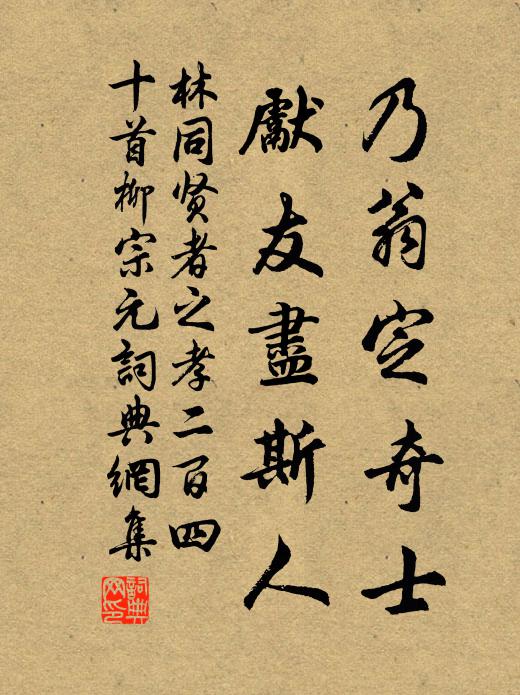 乃翁定奇士
厭友盡斯人
林同贤者之孝二百四
十首柳宗元詞典網集
詞典网印